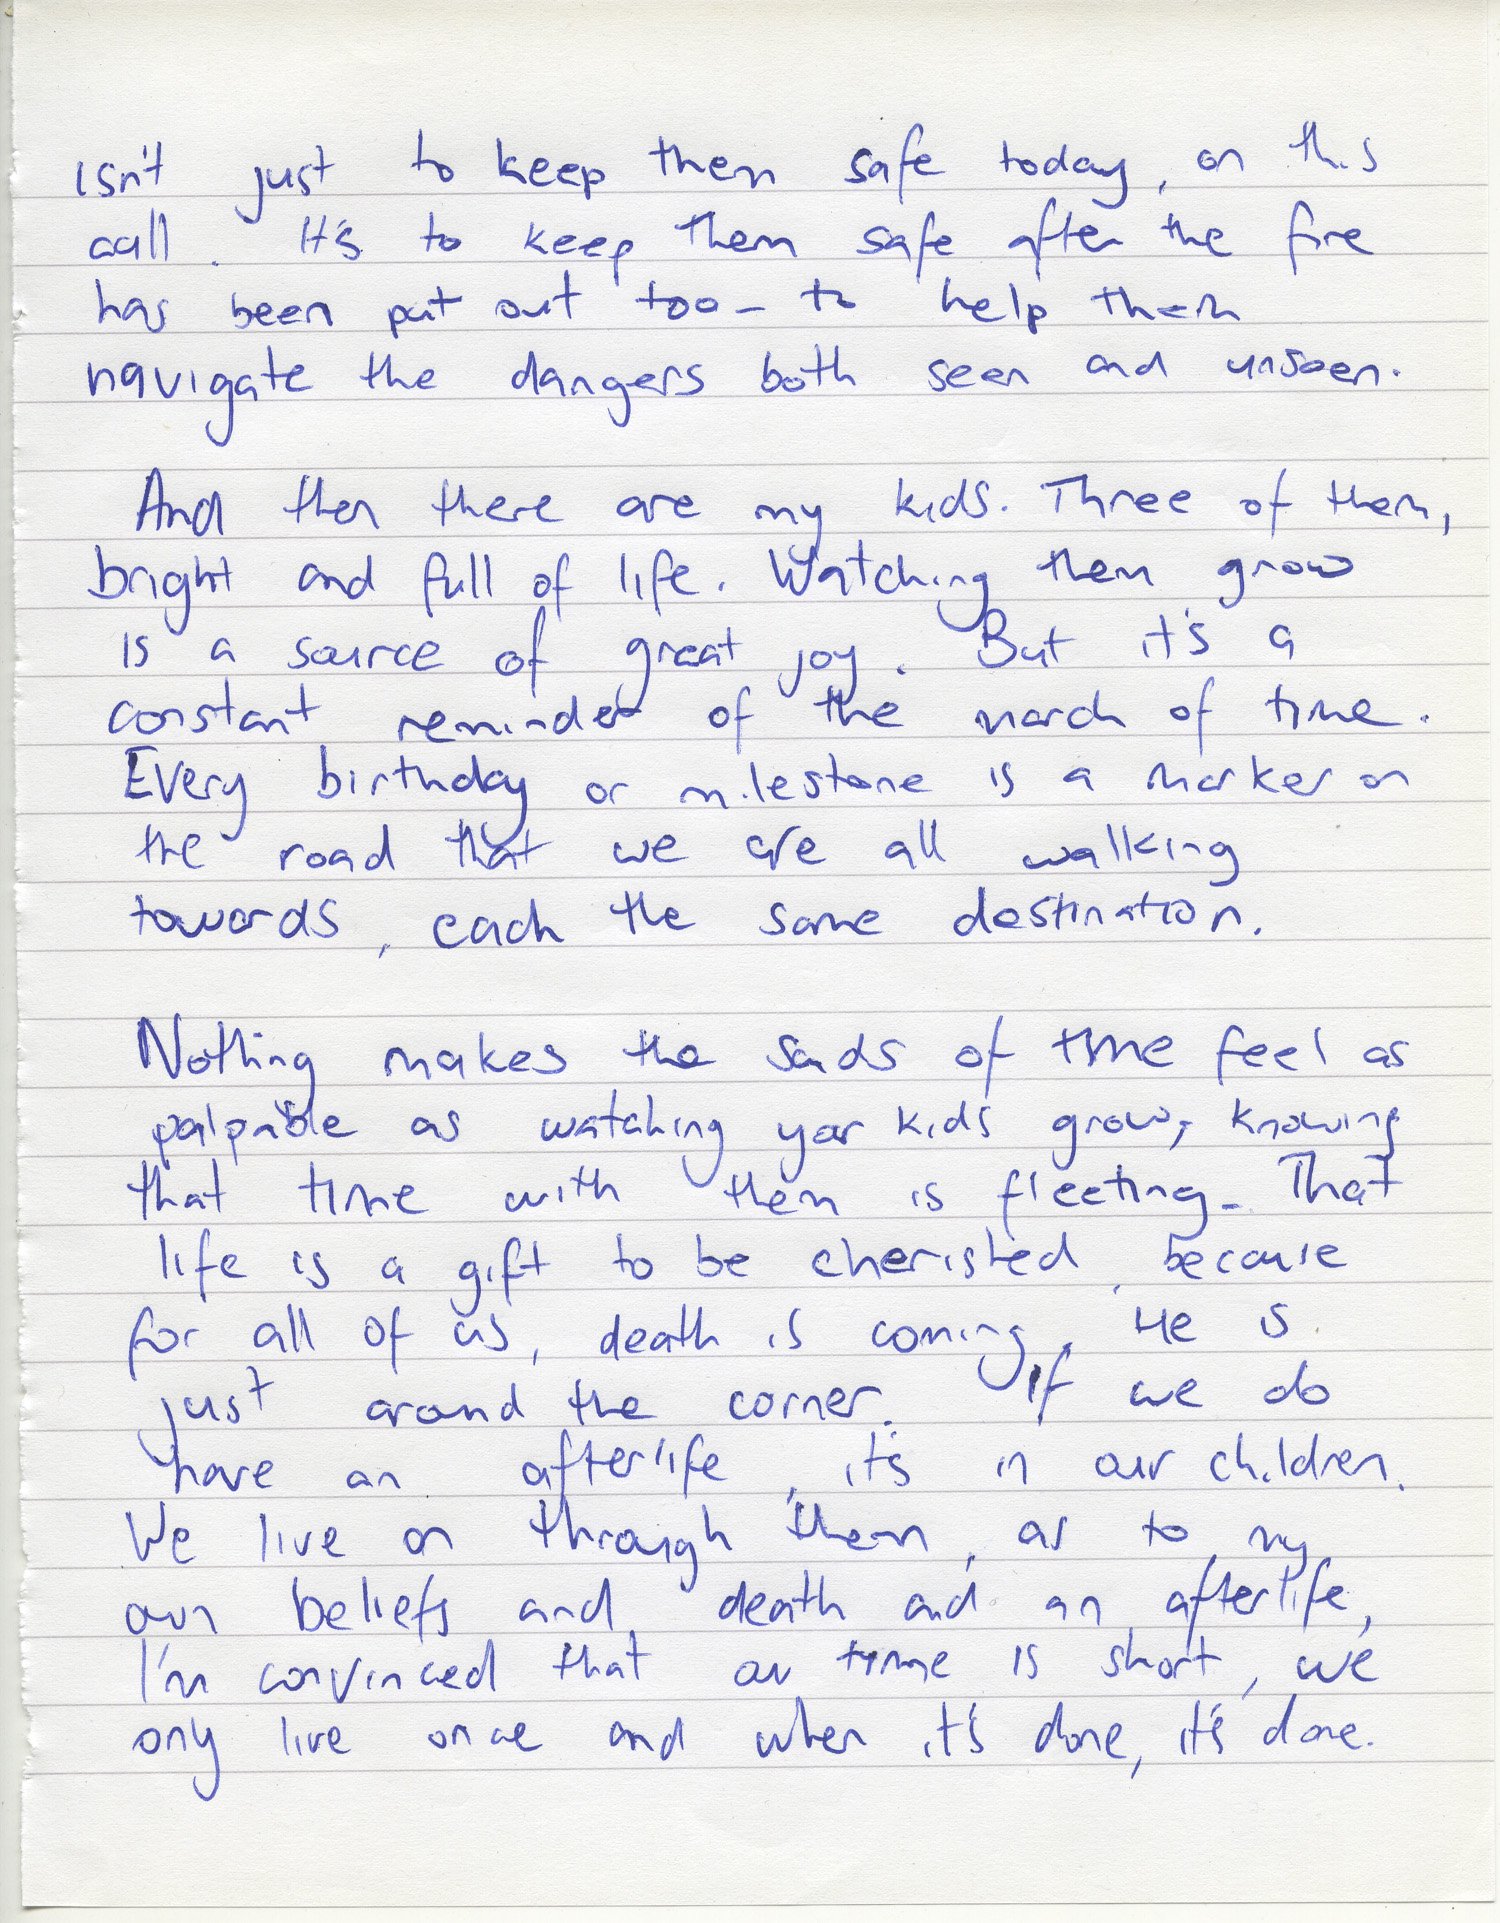 isn't just to keep them safe today, on this
call. It's to keep them safe after the fire
has been put out too - to help them
navigate the dangers both seen and unseen.
And then there are my kids. Three of them,
bright and full of life. Watching them grow
is a source of great joy. But it's a
constant reminder of the march of time.
Every birthday or milestone is a marker on
the road that we are all walking
towards, each the same destination.
Nothing makes the sands of time feel as
palpable as watching your kids grow, knowing
that time with them is fleeting. That
life is a gift to be cherished, because
for all of us, death is coming. He is
just around the corner. If we do
have an afterlife, it's in our children.
We live on through them, as to my
own beliefs and death and an afterlife,
I'm convinced that our time is short, we
only live once and when it's done, it's done.